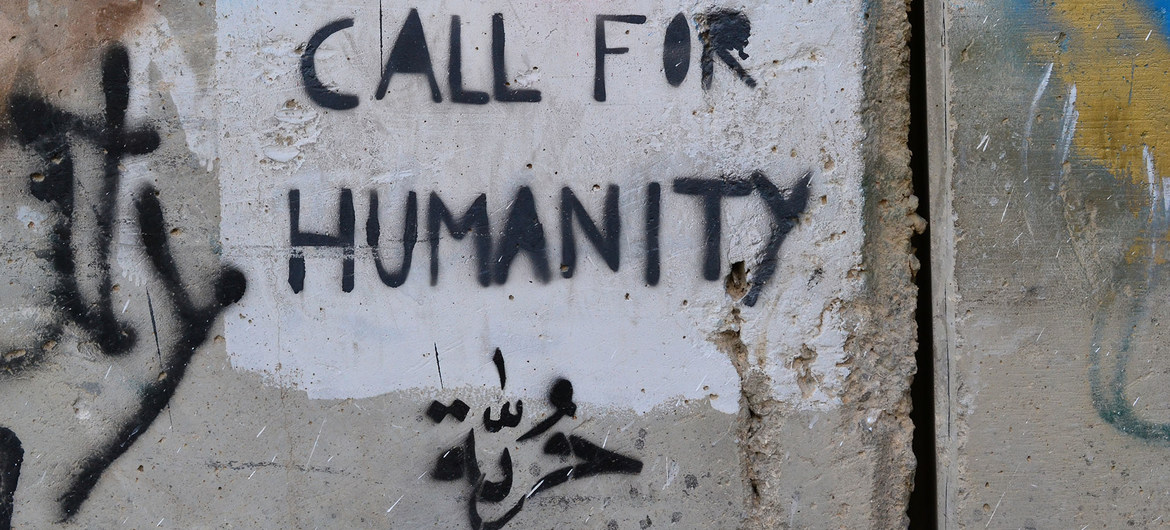 CALL FOR
HUMANITY
حُرّيَّة